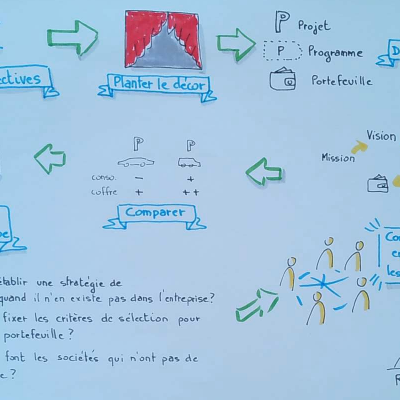 ectives
Planter le décor
P Projet
P Programme
Portefeuille
D
Vision
Mission
P P
conso. - +
coffre + ++
Comparer
établir une stratégie de
quand il n'en existe pas dans l'entreprise?
fixer les critères de sélection pour
portefeuille ?
font les sociétés qui n'ont pas de
e ?
Co
e
les
R